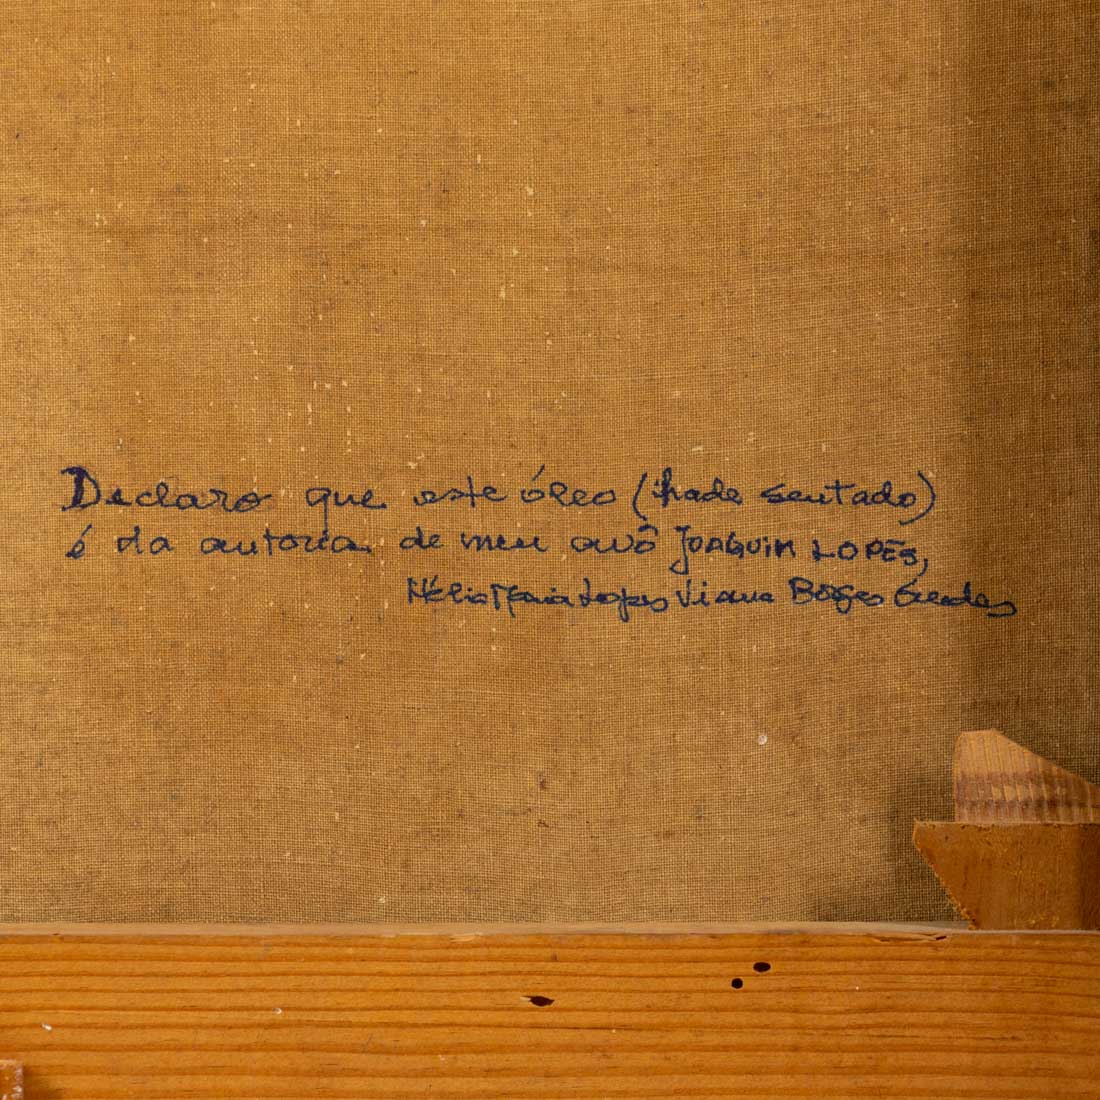 Declaro que este óleo (frade sentado)
é da autoria de meu avô JOAQUIM LOPES,
Hélia Maria Lopes Viana Borges Guedes